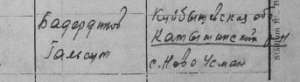 Бадердинов
Галсит
Куйбышевская об
Камышлинский р-н
с. Ново Усман